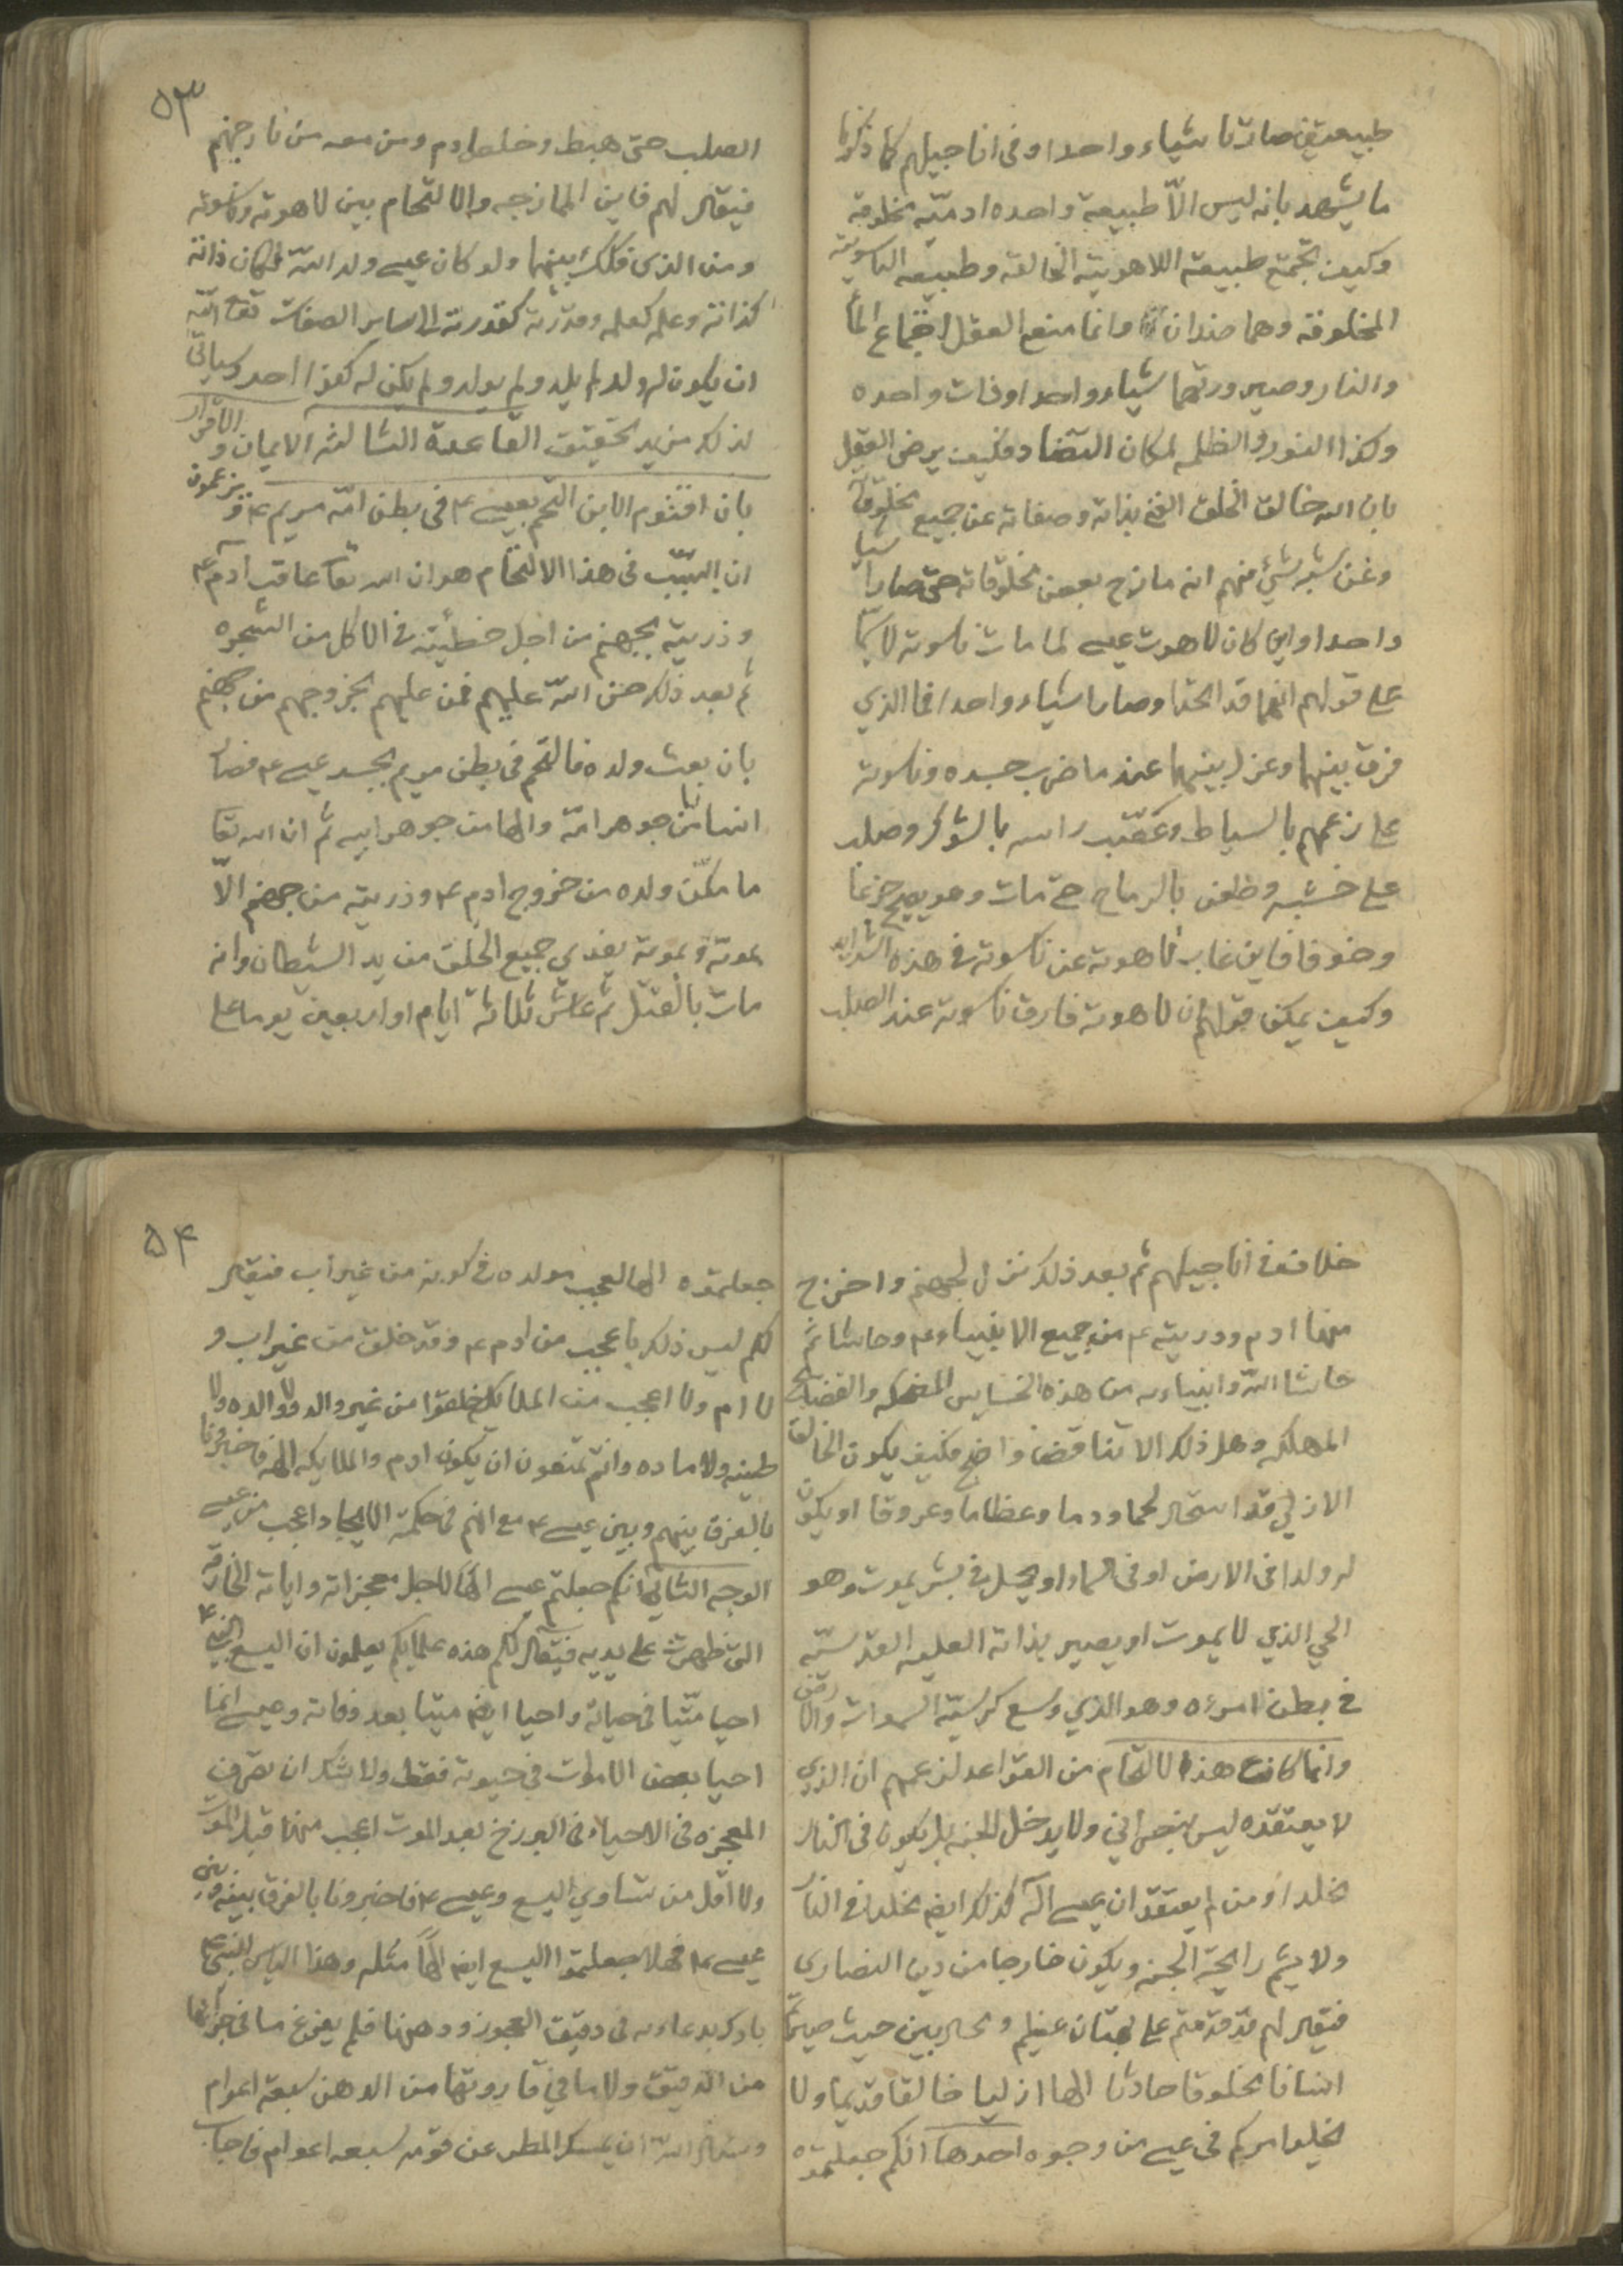 طبيعتين صارتا شياء واحدا وفى اناجيلهم كما ذكرنا
ما يشهد بانه ليس الّا طبيعية واحده ادميّة مخلوقة
وكيف تجتمع طبيعة اللاهويتة الخالقة وطبيعه الناسوتية
المخلوقة وهما ضدان وانما منع العقل اجتماع الما
والنار وصيرورتهما شياء واحدا وذات واحده
وكذا النور والظلمه لمكان التضاد فكيف يرضى العقل
بان الله خالق الخلق الغنى بذاته وصفاته عن جميع مخلوقاته
وعن شبه شئ منهم انه مازج بعض مخلوقاته حتى صارا شيا
واحدا واين كان لاهوت عيسى لما مات ناسوته لاسيما
على قولهم انهما قد اتحدا وصارا شياء واحدا فما الذي
فرق بينهما وعزل بينهما عند ما ضرب جسده وناسوته
على زعمهم بالسياط وعصّب راسه بالشوكر وصلب
على خشبه وطعن بالرماح حتى مات وهو يصيح جزعا
وخوفا فاين غاب لاهوته عن ناسوته فى هذه الشدايد
وكيف يمكن قولهم ان لاهوته فارق ناسوته عند الصلب
٥٣
الصلب حتى هبط وخلص ادم ومن معه من نار جهنم
فيقال لهم فاين الممازجه والالتحام بين لاهوته وناسوته
ومن الذى فكك بينهما ولو كان عيسى ولد اللّه لكان ذاته
كذاته وعلمه كعلمه وقدرته كقدرته الى ساير الصفات تعالى اللّه
ان يكون له ولد لم يلد ولم يولد ولم يكن له كفوا احد وسياتي
لذلك مزيد تحقيق القاعدة الثالثه الايمان والاقرار
بان اقنوم الابن التحم بعيسى ع فى بطن امّه مريم ع ويزعمون
ان السّبب فى هذا الالتحام هو ان الله تعا عاقب آدم ع
وذريته بجهنم من اجل خطيئته فى الاكل من الشجره
ثم بعد ذلك حنن اللّه عليهم فمن عليهم بخروجهم من جهنم
بان بعث ولده فالتحم فى بطن مريم بجسد عيسى ع فصار
انسانا من جوهر امّه والها من جوهر ابيه ثم ان الله تعا
ما مكّن ولده من خروج ادم ع وذريته من جهنم الّا
بموته وبموته يفدي جميع الخلق من يد الشيطان وانه
مات بالقتل ثم عاش ثلاثة ايام او اربعين يوما على
خلاف فى اناجيلهم ثم بعد ذلك نزل لجهنم واخرج
منها ادم وذريته ع من جميع الانبياء ع وحاشا ثم
حاشا اللّه وانبياءه من هذه الخسايس المضحكه والفضايح
المهلكه وهل ذلك الا تناقض واضح فكيف يكون الخالق
الازلي قد استحال لحما ودما وعظاما وعروقا او يكون
له ولدا فى الارض او فى السماء او يحل فى بشر يموت وهو
الحي الذي لا يموت او يصير بذاته العليه القدسيّه
فى بطن امرءه وهو الذي وسع كرسيّه السموات والارض
وانما كانت هذا الالتحام من القواعد لزعمهم ان الذي
لا يعتقده ليس بنصرانى ولا يدخل الجنه بل يكون فى النار
مخلدا ومن لم يعتقد ان عيسى اله كذلك ايضم مخلدا فى النار
ولا يشم رايحة الجنه ويكون خارجا من دين النصارى
فيقال لهم قد قدمتم على بهتان عظيم حيث صيرتم
انسانا مخلوقا حادثا الها ازليا خالقا قديما ولا
يخلو امركم فى عيسى من وجوه احدها انكم جعلتموه
٥٤
جعلتموه الها لعجب مولده فى كونه من غير اب فيقال
لكم ليس ذلك باعجب من ادم ع وقد خلق من غير اب و
لا ام ولا اعجب من الملايكه خلقوا من غير والد ولا والده ولا
طينه ولا ماده وانتم تمنعون ان يكون ادم والملايكه الهه فاخبرونا
بالفرق بينهم وبين عيسى ع مع انهم فى حكمة الايجاد اعجب من عيسى
الوجه الثانى انكم جعلتم عيسى الها لاجل معجزاته واياته الخارقة
التى ظهرت على يديه فيقال لكم هذه علمايكم يعلمون ان اليسع النبى ع
احيا ميّتا فى حياته واحيا ايضم ميتا بعد وفاته وعيسى انما
احيا بعض الاموات فى حيوته فقط ولا شك ان تصرف
المعجزه فى الاحياء فى البرزخ بعد الموت اعجب منها قبل الموت
ولا اقل من تساوي اليسع وعيسى ع فاخبرونا بالفرق بينه وبين
عيسى ع فهلا جعلتموا اليسع ايضم الهًا مثله وهذا الياس النبى ع
بارك بدعاءه فى دقيق العجوز ودهنها فلم يفرغ ما فى جرابها
من الدقيق ولا ما في قارورتها من الدهن سبعة اعوام
وسال اللّه ان يمسك المطر عن قومه سبعه اعوام فاجاب